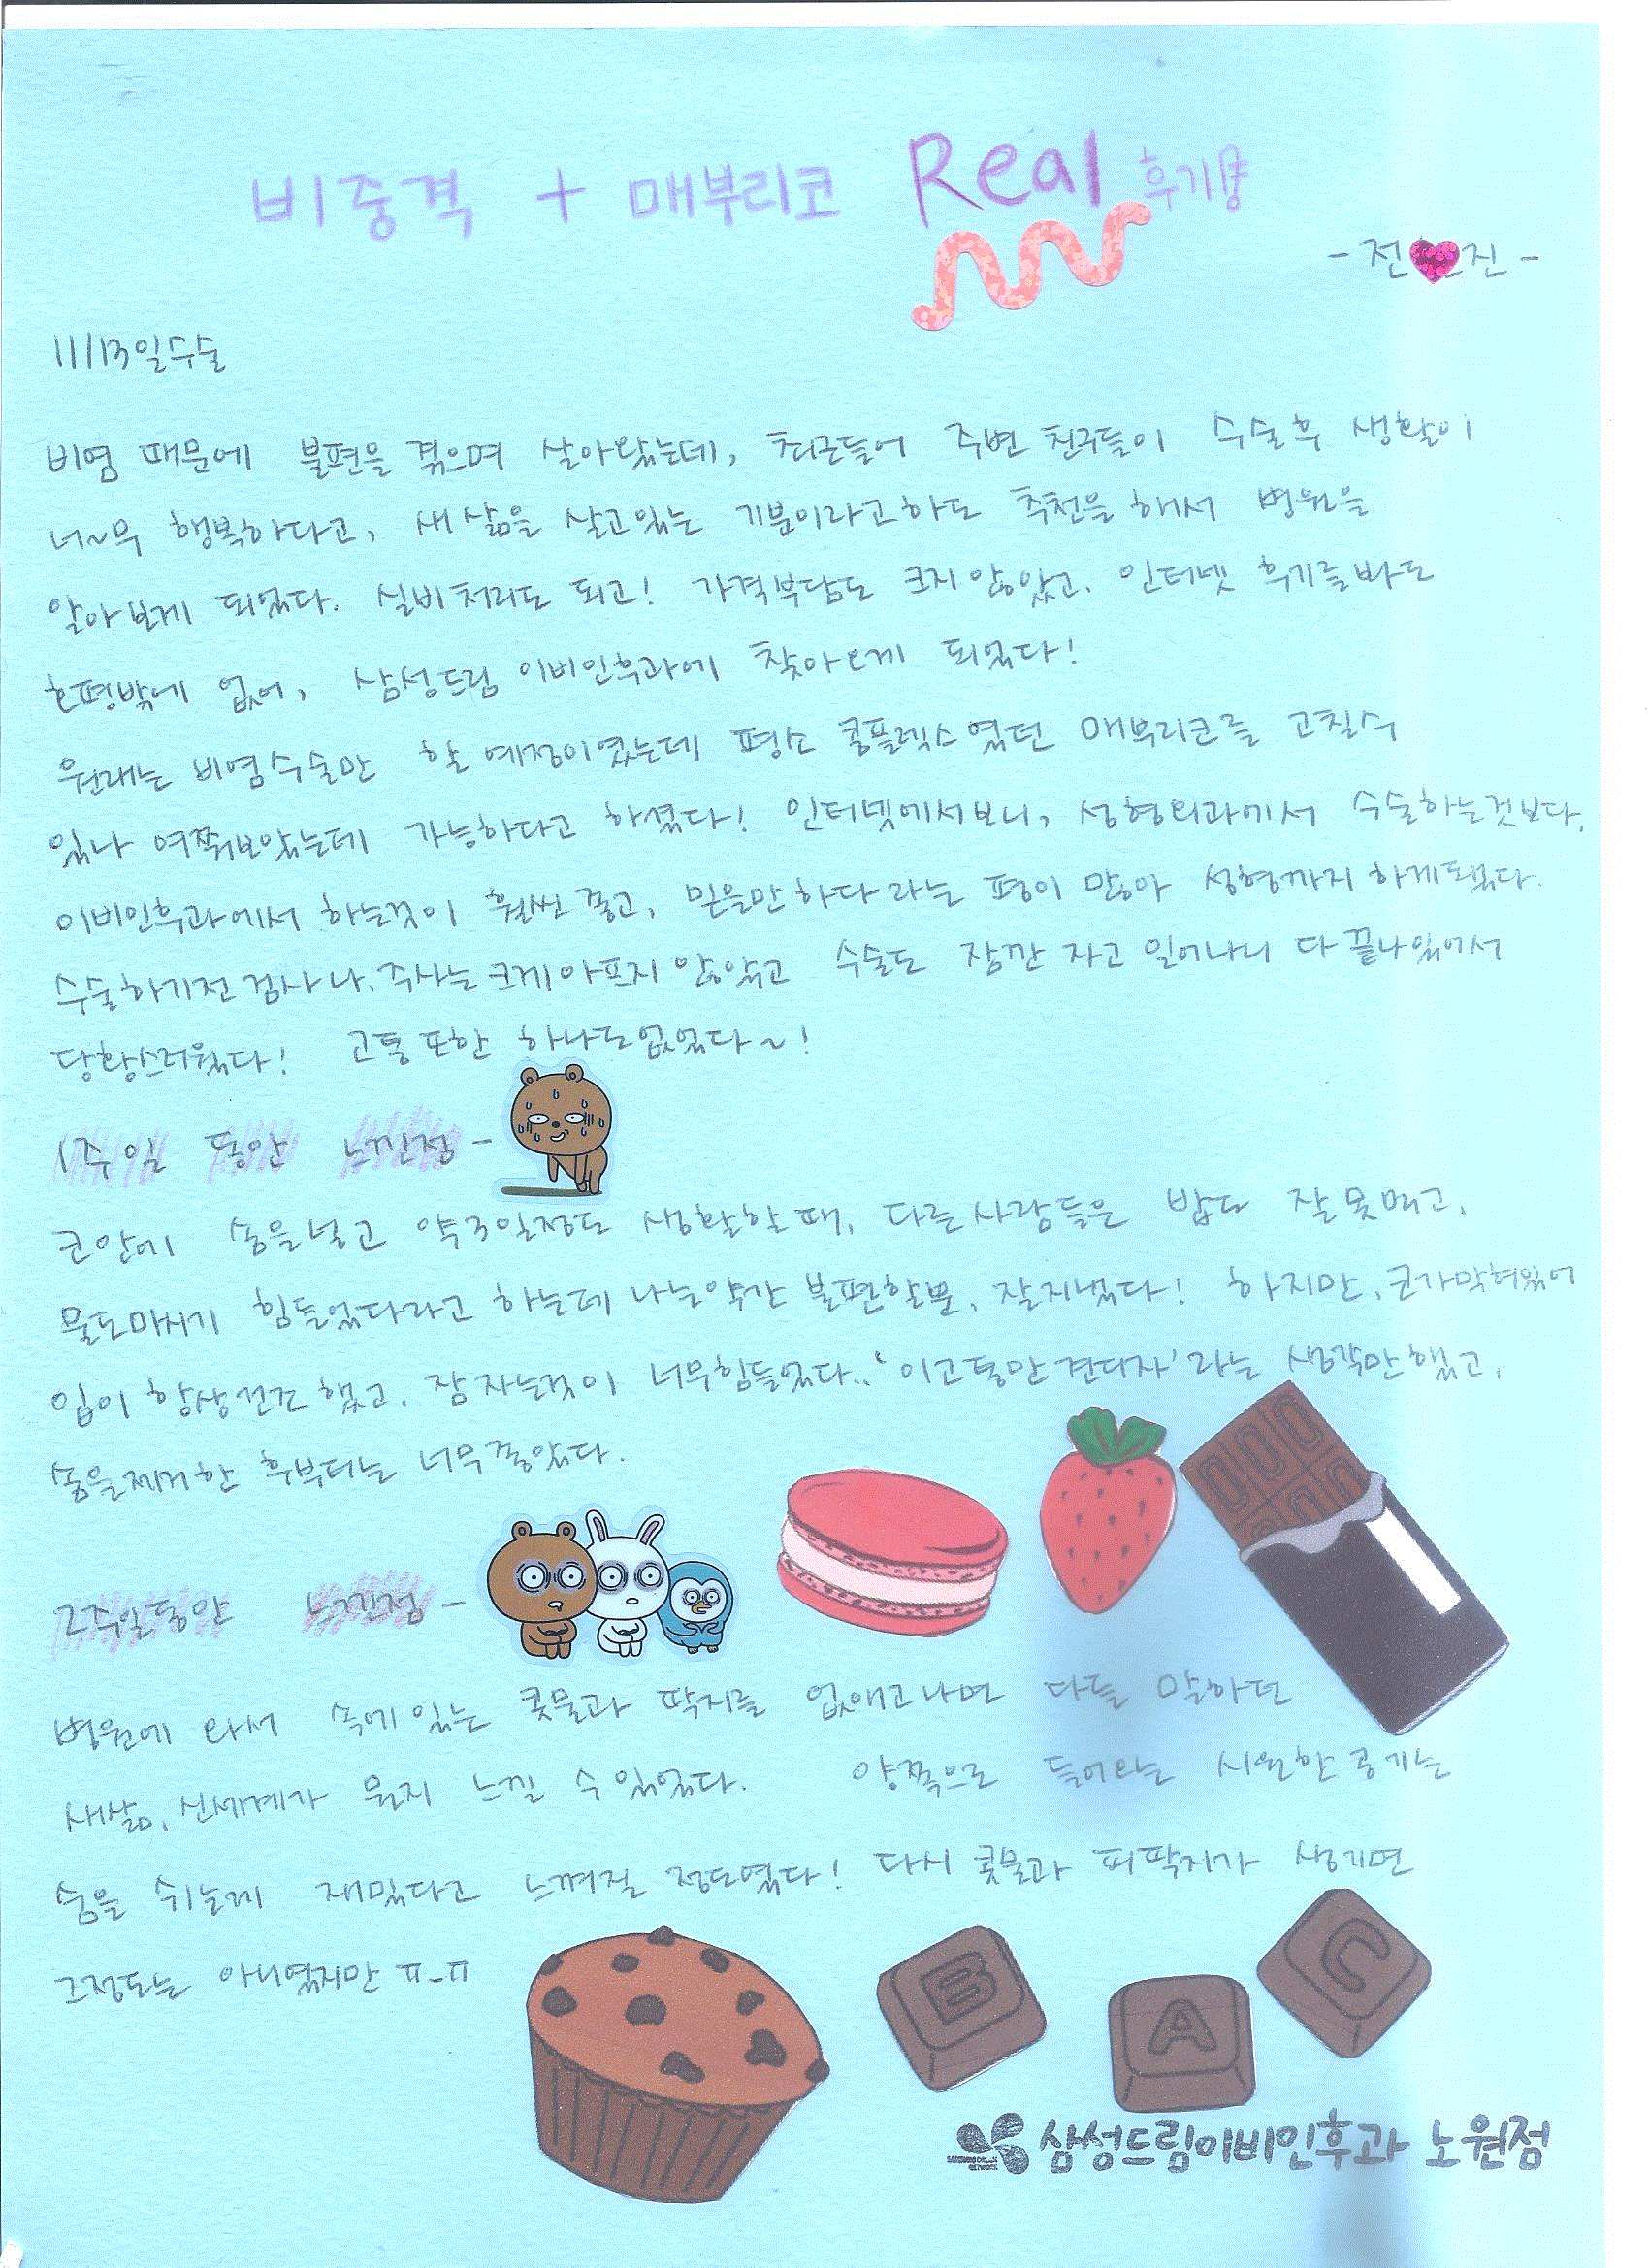 비중격 + 매부리코 Real 후기
- 전 진 -
11/13일수술
비염 때문에 불편을 겪으며 살아왔는데, 최근들어 주변 친구들이 수술후 생활이
너~무 행복하다고, 새 삶을 살고있는 기분이라고하도 추천을 해서 병원을
알아보게 되었다. 실비처리도 되고! 가격부담도 크지않았고. 인터넷 후기를봐도
호평밖에 없어, 삼성드림 이비인후과에 찾아오게 되었다!
원래는 비염수술만 할 예정이였는데 평소 콤플렉스였던 매부리코를 고칠수
있나 여쭤보았는데 가능하다고 하셨다! 인터넷에서보니, 성형외과에서 수술하는것보다,
이비인후과에서 하는것이 훨씬 좋고, 믿을만하다라는 평이 많아 성형까지 하게되었다.
수술하기전 검사나, 주사는 크게아프지 않았고 수술도 잠깐 자고 일어나니 다 끝나있어서
당황스러웠다! 고통 또한 하나도없었다~!
1주일 동안 느낀점 -
코안에 솜을 넣고 약3일정도 생활할때, 다른사람들은 밥도 잘 못먹고,
물도마시기 힘들었다라고 하는데 나는약간 불편할뿐, 잘지냈다! 하지만, 코가막혀있어
입이 항상건조했고, 잠 자는것이 너무힘들었다.. '이고통만견디자'라는 생각만했고,
솜을제거한 후부터는 너무좋았다.
2주일동안 느낀점 -
병원에 와서 속에있는 콧물과 딱지를 없애고나면 다들 말하던
새삶, 신세계가 뭔지 느낄 수 있었다. 양쪽으로 들어오는 시원한 공기는
숨을 쉬는게 재밌다고 느껴질 정도였다! 다시 콧물과 피딱지가 생기면
그정도는 아니였지만 ㅠ-ㅠ
B A C
삼성드림이비인후과 노원점